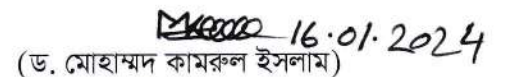 16.01.2024
(ড. মোহাম্মদ কামরুল ইসলাম)